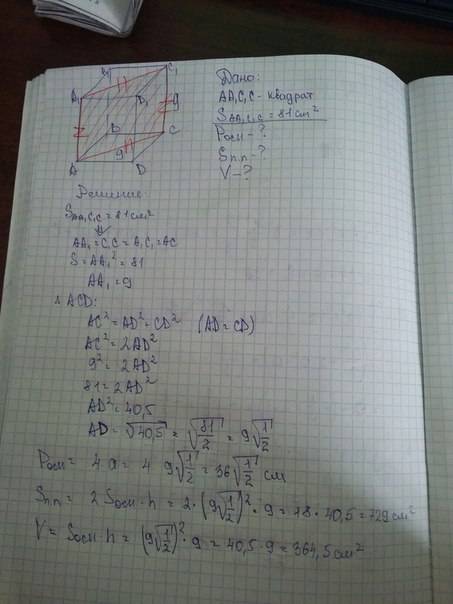 B₁ C₁
A₁ D₁ 9
B C
A 9 D
Дано:
AA₁C₁C - квадрат
S AA₁C₁C = 81 см²
Pосн - ?
Sп.п - ?
V - ?
Решение
S AA₁C₁C = 81 см²
⇓
AA₁ = C₁C = A₁C₁ = AC
S = AA₁² = 81
AA₁ = 9
Δ ACD:
AC² = AD² = CD² (AD = CD)
AC² = 2AD²
9² = 2AD²
81 = 2AD²
AD² = 40,5
AD = √40,5 = √81/2 = 9√1/2
Pосн = 4a = 4 · 9√1/2 = 36√1/2 см
Sп.п = 2 Sосн · h = 2 · (9√1/2)² · 9 = 18 · 40,5 = 729 см²
V = Sосн · h = (9√1/2)² · 9 = 40,5 · 9 = 364,5 см²